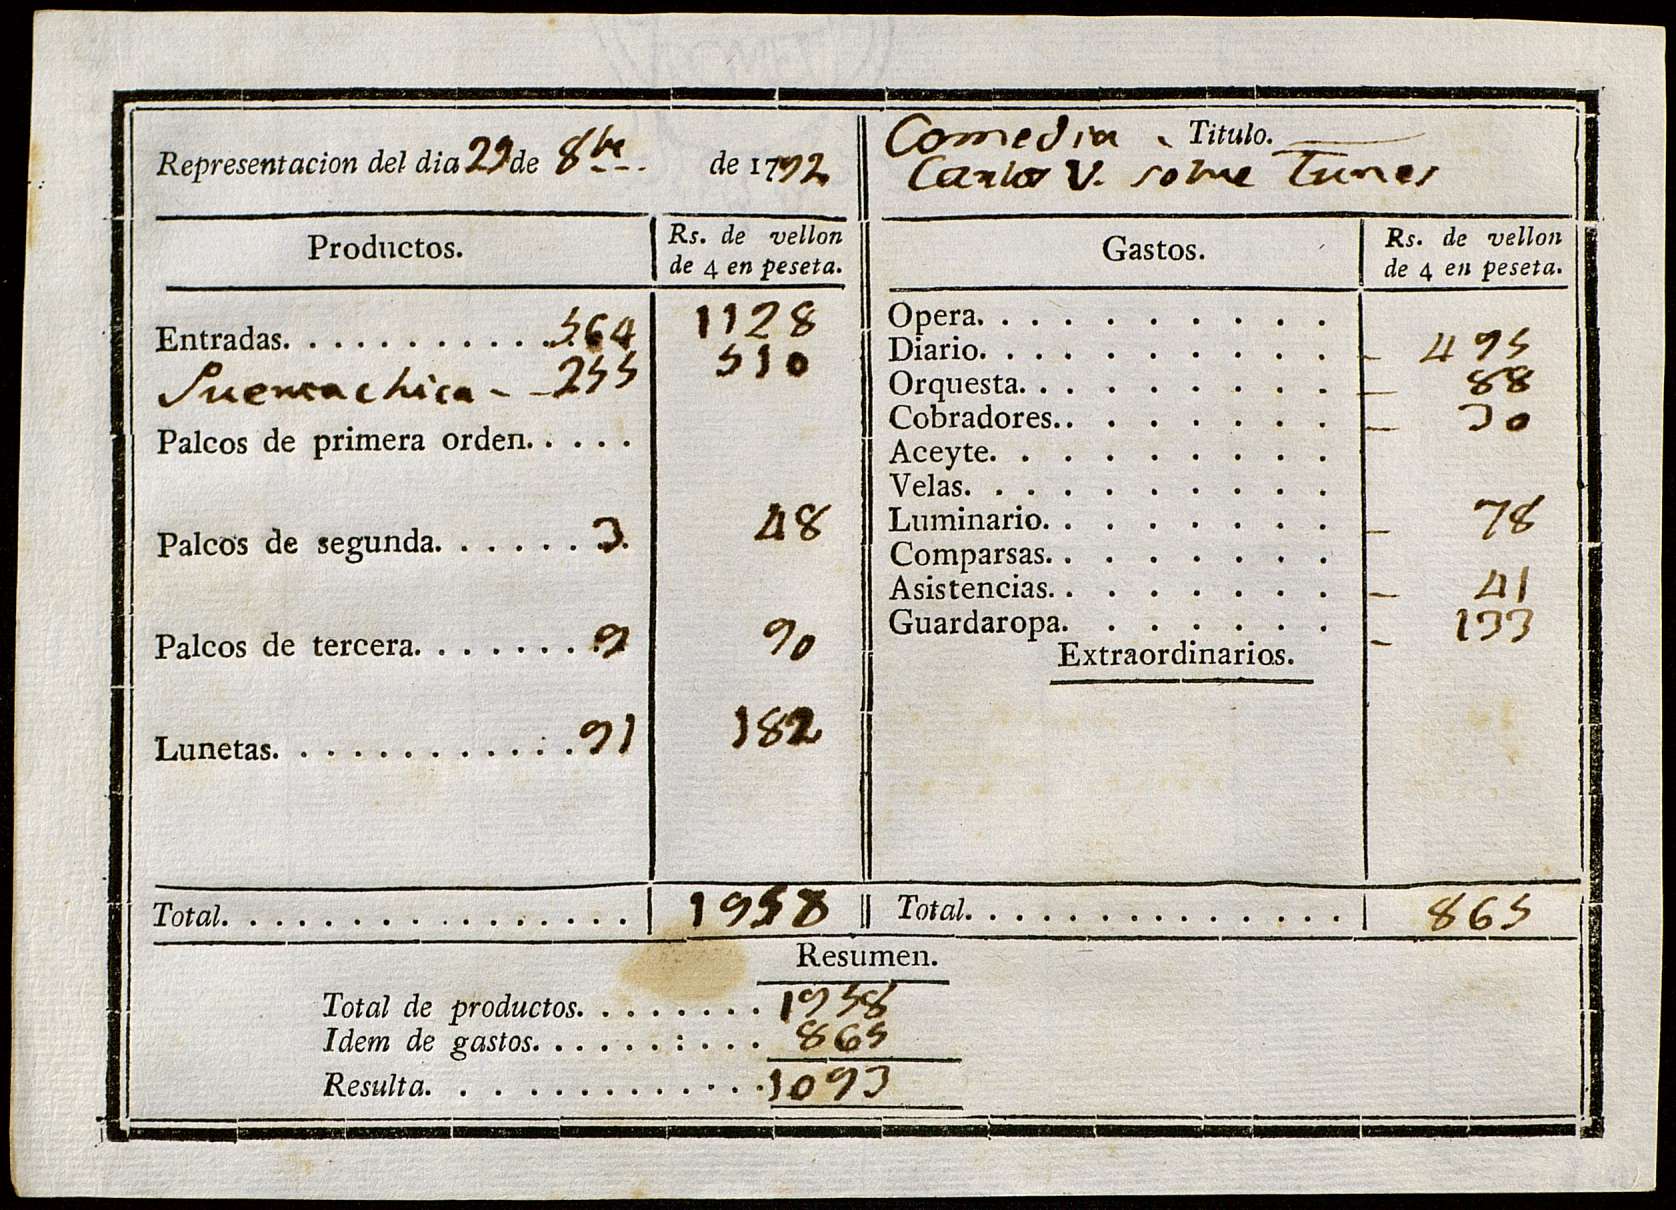 Representacion del dia 29 de 8bre de 1792
Comedia Titulo.
Carlos V. sobre Tunes
Productos. Rs. de vellon
de 4 en peseta.
Entradas. 564 1128
Puerta chica 255 510
Palcos de primera orden.
Palcos de segunda. 3. 48
Palcos de tercera. 9 90
Lunetas. 91 182
Total. 1958
Gastos. Rs. de vellon
de 4 en peseta.
Opera.
Diario. 495
Orquesta. 88
Cobradores. 30
Aceyte.
Velas.
Luminario. 78
Comparsas.
Asistencias. 41
Guardaropa. 133
Extraordinarios.
Total. 865
Resumen.
Total de productos. 1958
Idem de gastos. 865
Resulta. 1093